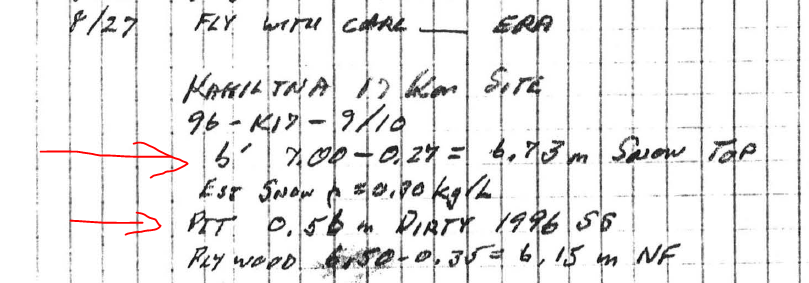 8/27 FLY WITH CARL ___ ERA
KAHILTNA 17 Km SITE
96-K17-9/10
b' 7.00-0.27= 6.73 m SNOW TOP
EST SNOW ρ = 0.80 kg/L
PIT 0.56 m DIRTY 1996 SS
PLYWOOD 6.50-0.35= 6.15 m NF